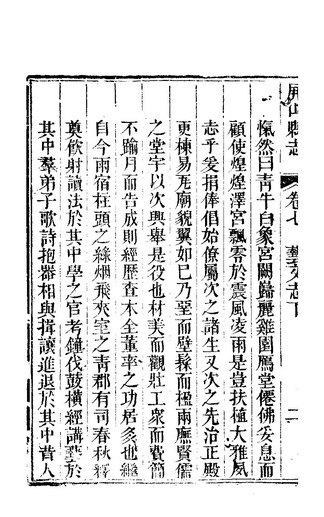 屏山縣志 卷七 藝文志下 二
愾然曰靑牛白象宮闕巋麗雞園鴈堂僊佛妥息而
顧使煌煌澤宮飄零於震風凌雨是豈扶植大雅夙
志乎爰捐俸倡始僚屬次之諸生又次之先治正殿
更棟易宂廟貌翼如已乃堊而壁髹而楹兩廡賢儒
之堂宇以次興舉是役也材美而觀壯工衆而費簡
不踰月而告成則經歷查木全董率之功居多也繼
自今雨宿柱頭之絲烟飛夾室之靑郡有司春秋釋
奠飲射讀法於其中學之官考鐘伐鼓橫經講藝於
其中羣弟子歌詩抱器相與揖讓進退於其中昔人